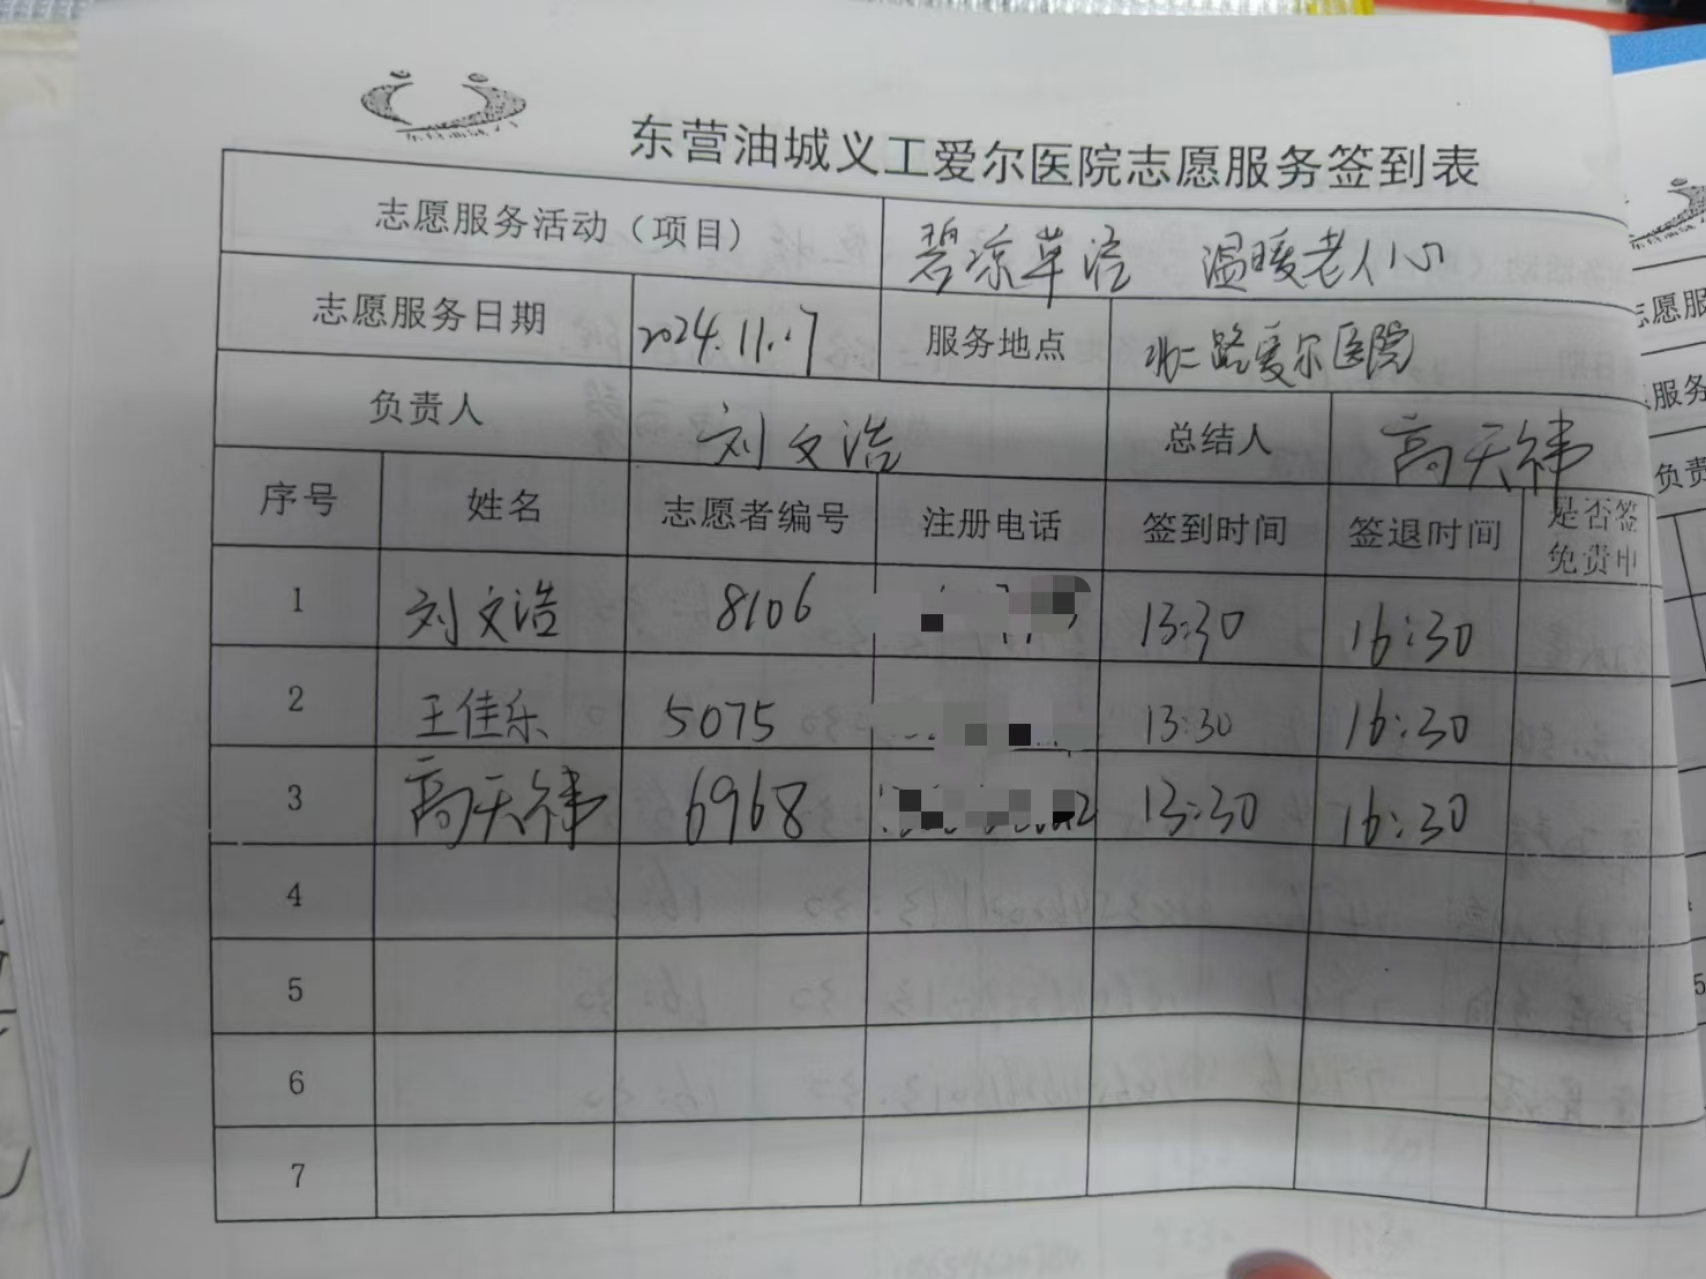 东营油城义工爱尔医院志愿服务签到表
志愿服务活动（项目） 碧凉草浯 温暖老人心
志愿服务日期 2024.11.17 服务地点 北二路爱尔医院
负责人 刘文浩 总结人 高天祎
序号 姓名 志愿者编号 注册电话 签到时间 签退时间 是否签
免费中
1 刘文浩 8106 13:30 16:30
2 王佳乐 5075 13:30 16:30
3 高天祎 6968 13:30 16:30
4
5
6
7